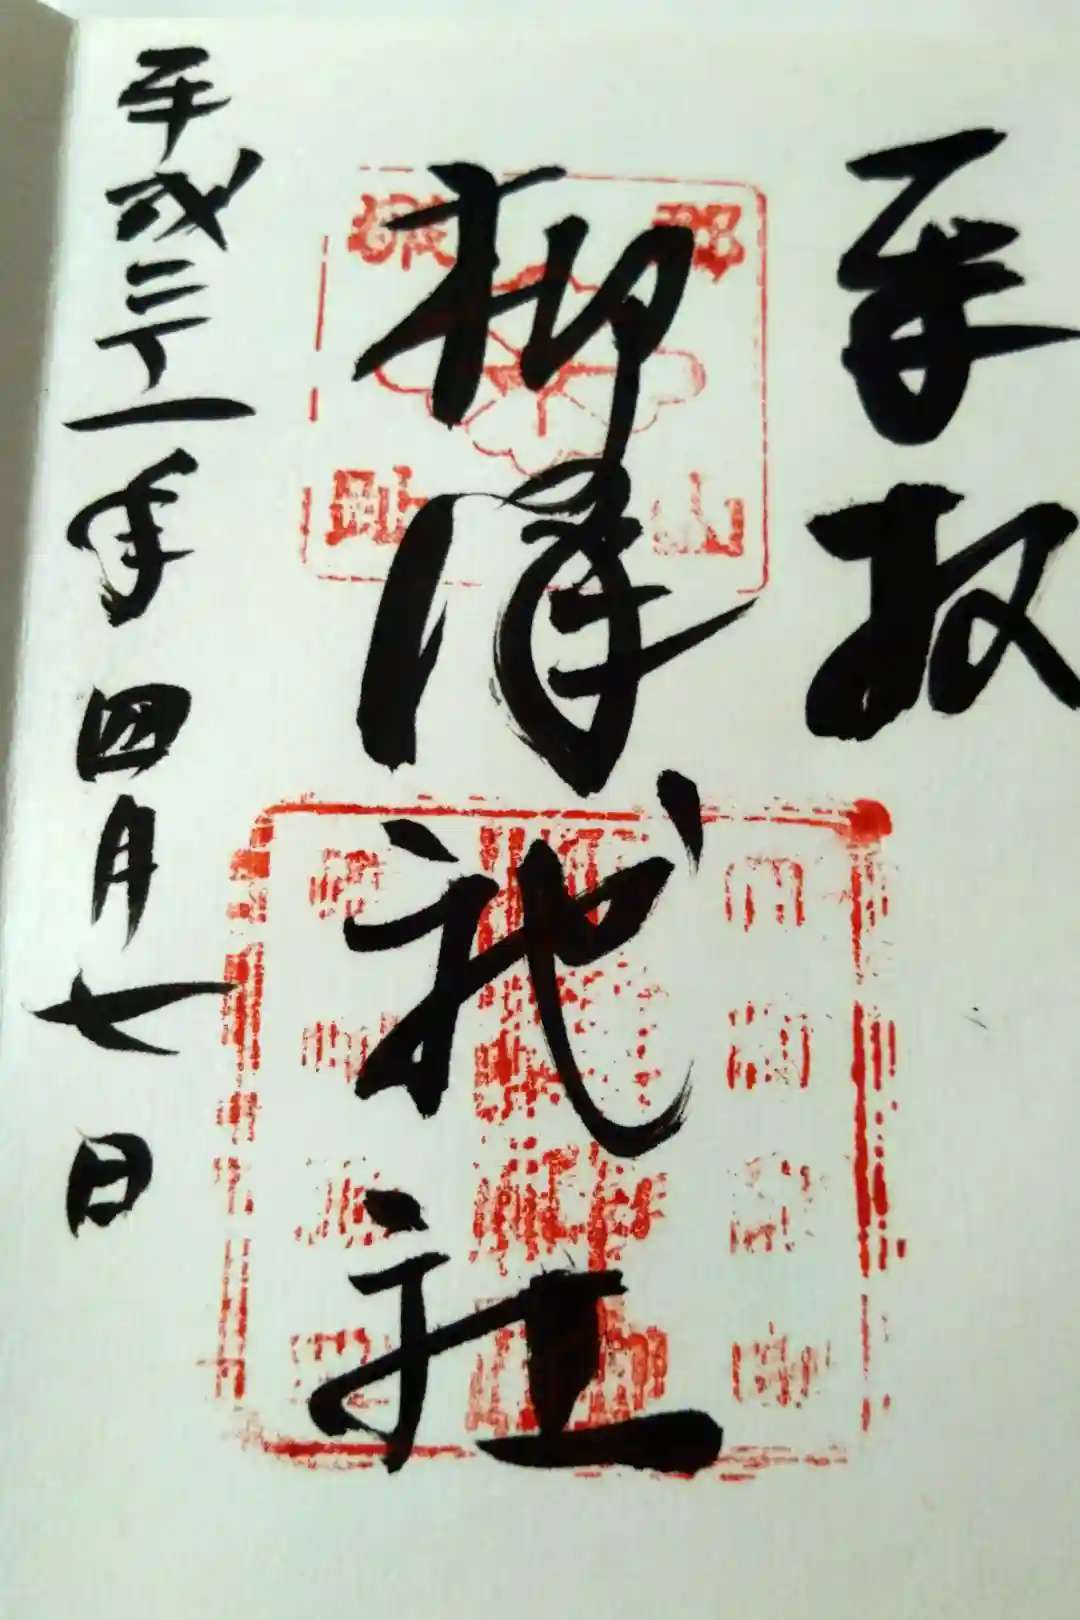 奉拝
柳澤神社
平成三十一年四月七日
郡山
城跡